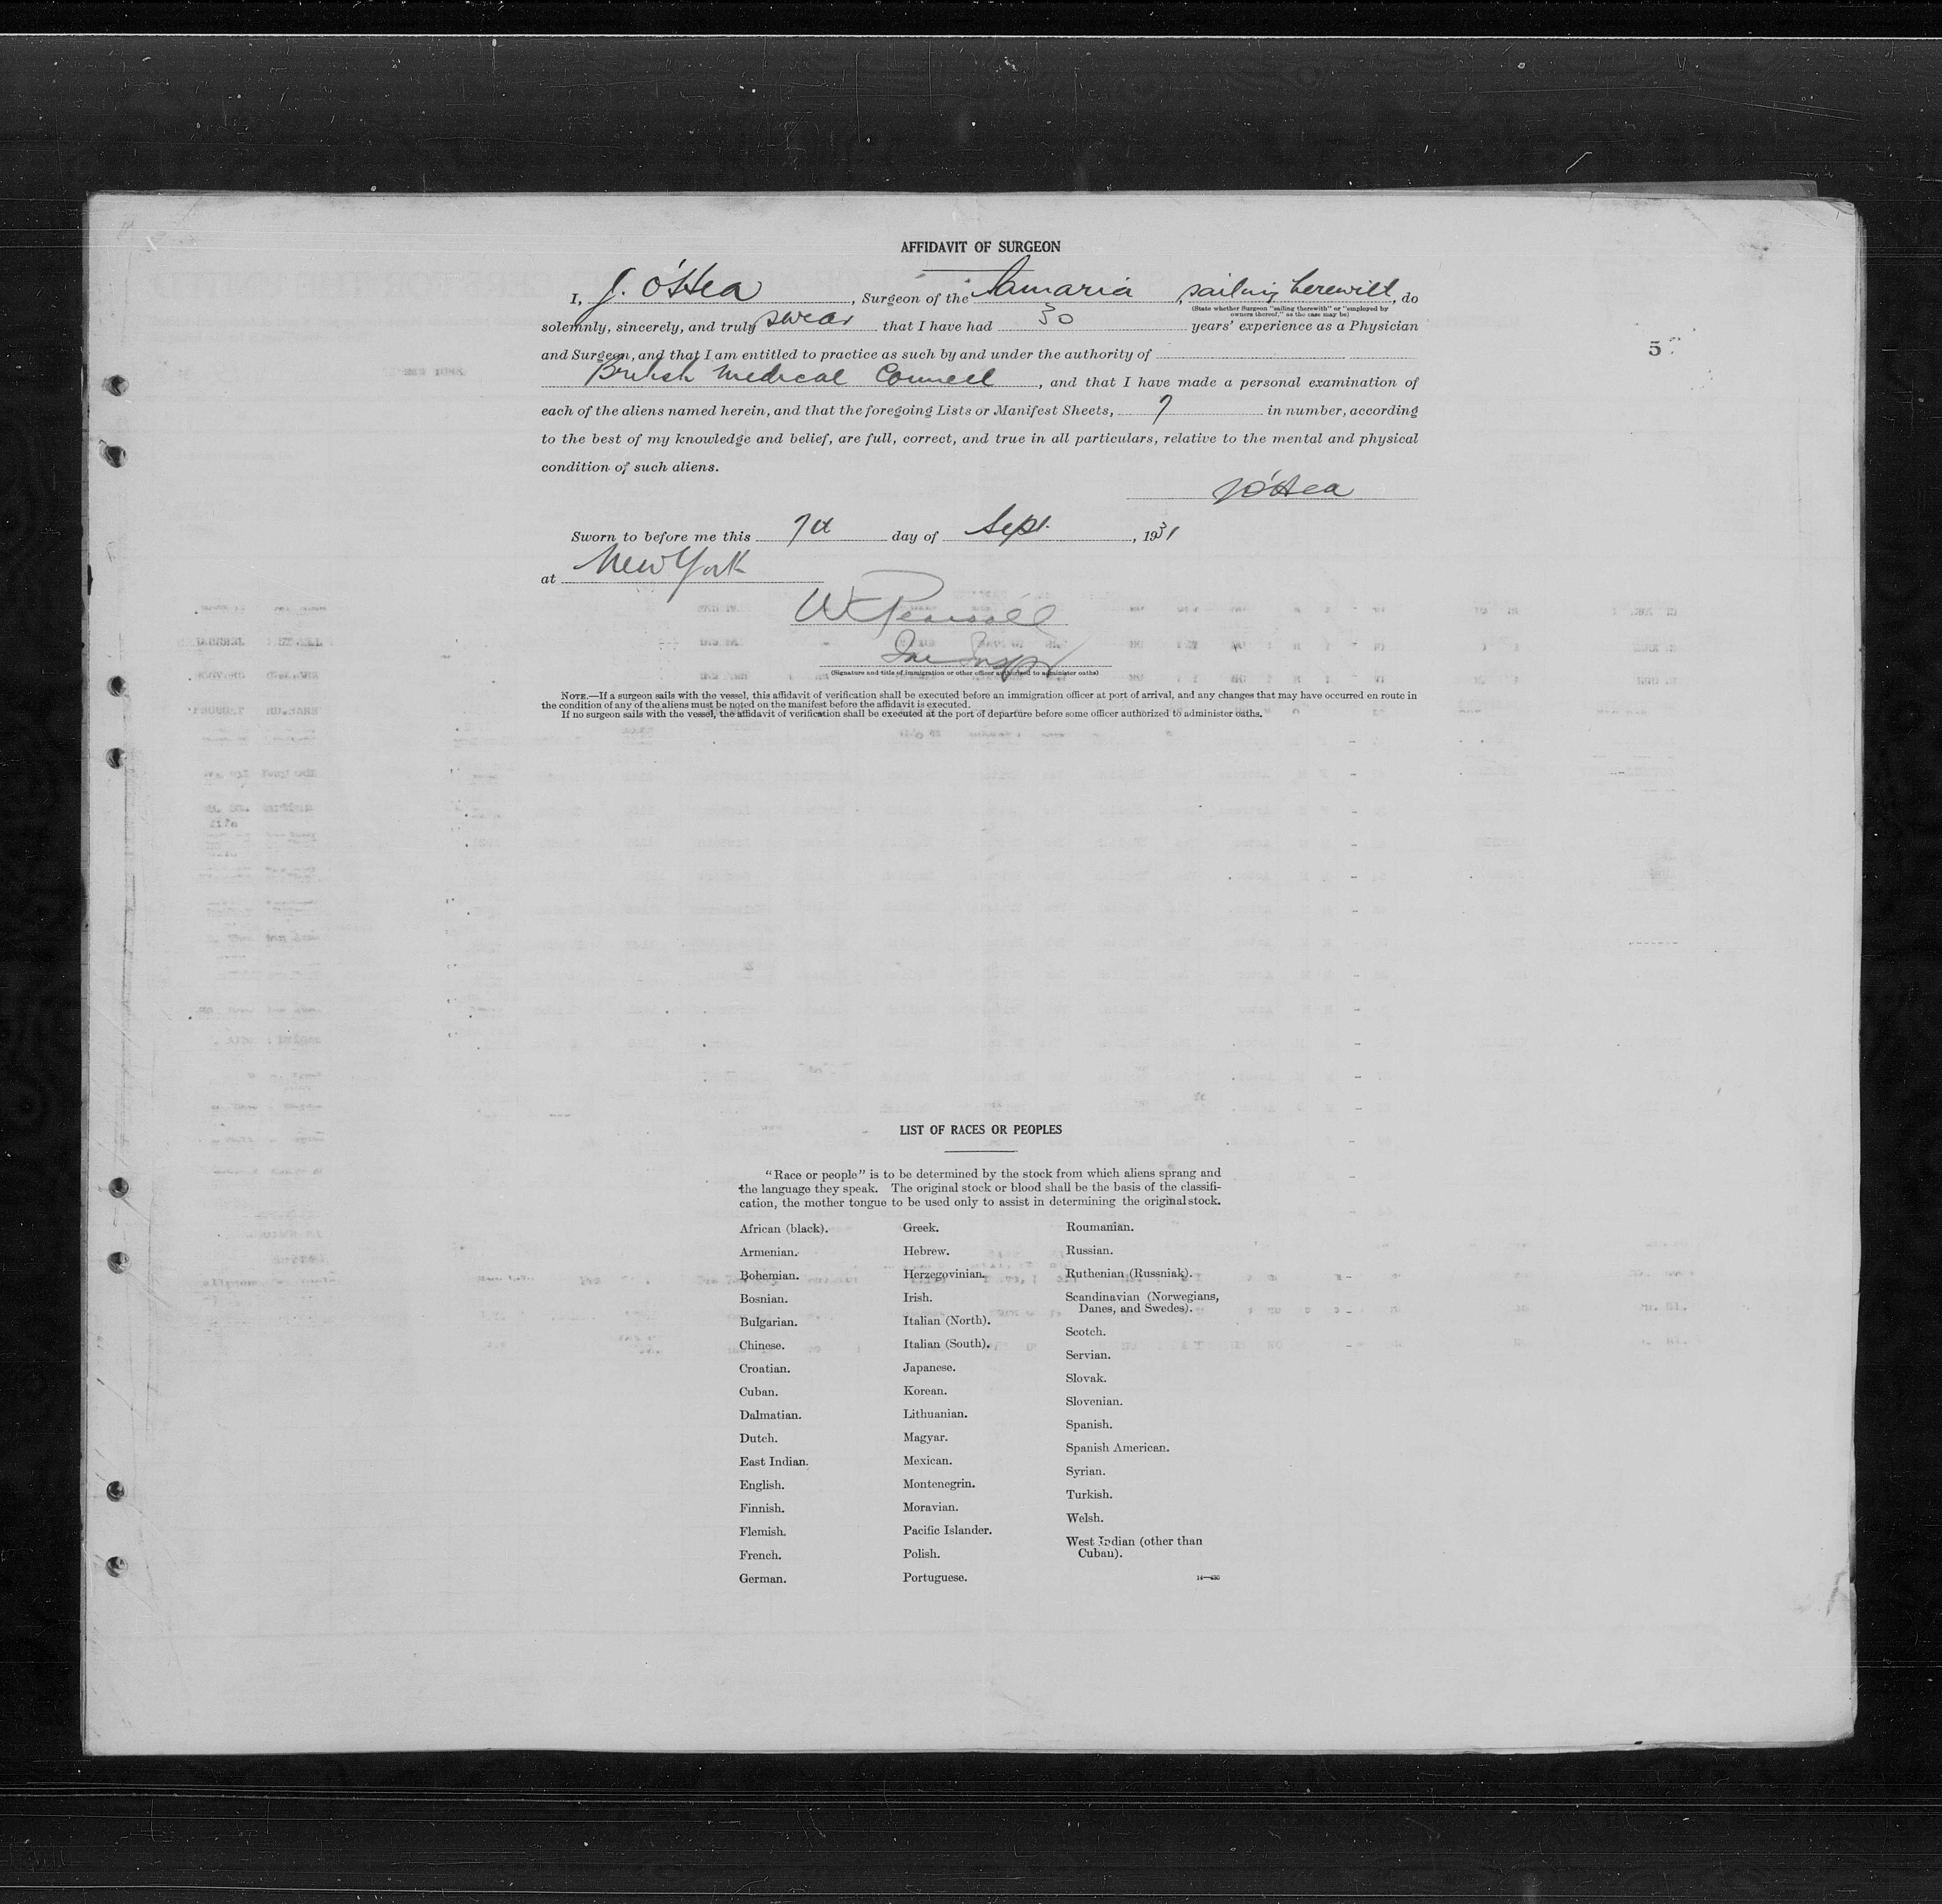 AFFIDAVIT OF SURGEON
I, J. O'Hea, Surgeon of the Samaria, sailing herewith, do
(State whether Surgeon "sailing therewith" or "employed by
owners thereof," as the case may be)
solemnly, sincerely, and truly swear that I have had 30 years' experience as a Physician
and Surgeon, and that I am entitled to practice as such by and under the authority of
British Medical Council, and that I have made a personal examination of
each of the aliens named herein, and that the foregoing Lists or Manifest Sheets, 7 in number, according
to the best of my knowledge and belief, are full, correct, and true in all particulars, relative to the mental and physical
condition of such aliens.
J O'Hea
Sworn to before me this 7th day of Sept., 1931
at New York
(Signature and title of immigration or other officer authorized to administer oaths)
NOTE.—If a surgeon sails with the vessel, this affidavit of verification shall be executed before an immigration officer at port of arrival, and any changes that may have occurred en route in
the condition of any of the aliens must be noted on the manifest before the affidavit is executed.
If no surgeon sails with the vessel, the affidavit of verification shall be executed at the port of departure before some officer authorized to administer oaths.
5
LIST OF RACES OR PEOPLES
"Race or people" is to be determined by the stock from which aliens sprang and
the language they speak. The original stock or blood shall be the basis of the classifi-
cation, the mother tongue to be used only to assist in determining the original stock.
African (black).
Armenian.
Bohemian.
Bosnian.
Bulgarian.
Chinese.
Croatian.
Cuban.
Dalmatian.
Dutch.
East Indian.
English.
Finnish.
Flemish.
French.
German.
Greek.
Hebrew.
Herzegovinian.
Irish.
Italian (North).
Italian (South).
Japanese.
Korean.
Lithuanian.
Magyar.
Mexican.
Montenegrin.
Moravian.
Pacific Islander.
Polish.
Portuguese.
Roumanian.
Russian.
Ruthenian (Russniak).
Scandinavian (Norwegians,
Danes, and Swedes).
Scotch.
Servian.
Slovak.
Slovenian.
Spanish.
Spanish American.
Syrian.
Turkish.
Welsh.
West Indian (other than
Cuban).